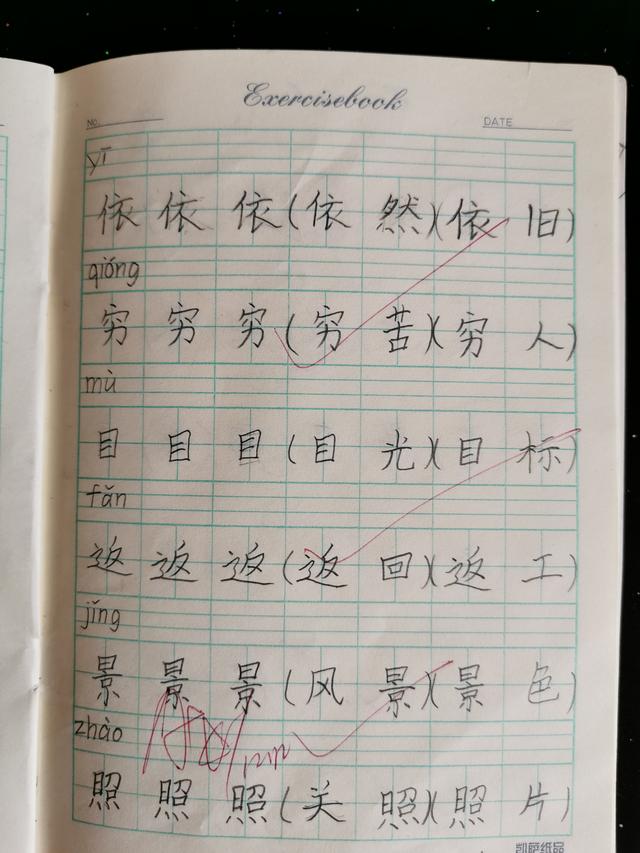 Exercisebook
No. DATE
yī
依 依 依 (依 然)(依 旧)
qióng
穷 穷 穷 (穷 苦)(穷 人)
mù
目 目 目 (目 光)(目 标)
fǎn
返 返 返 (返 回)(返 工)
jǐng
景 景 景 (风 景)(景 色)
zhào
照 照 照 (关 照)(照 片)
凯萨纸品